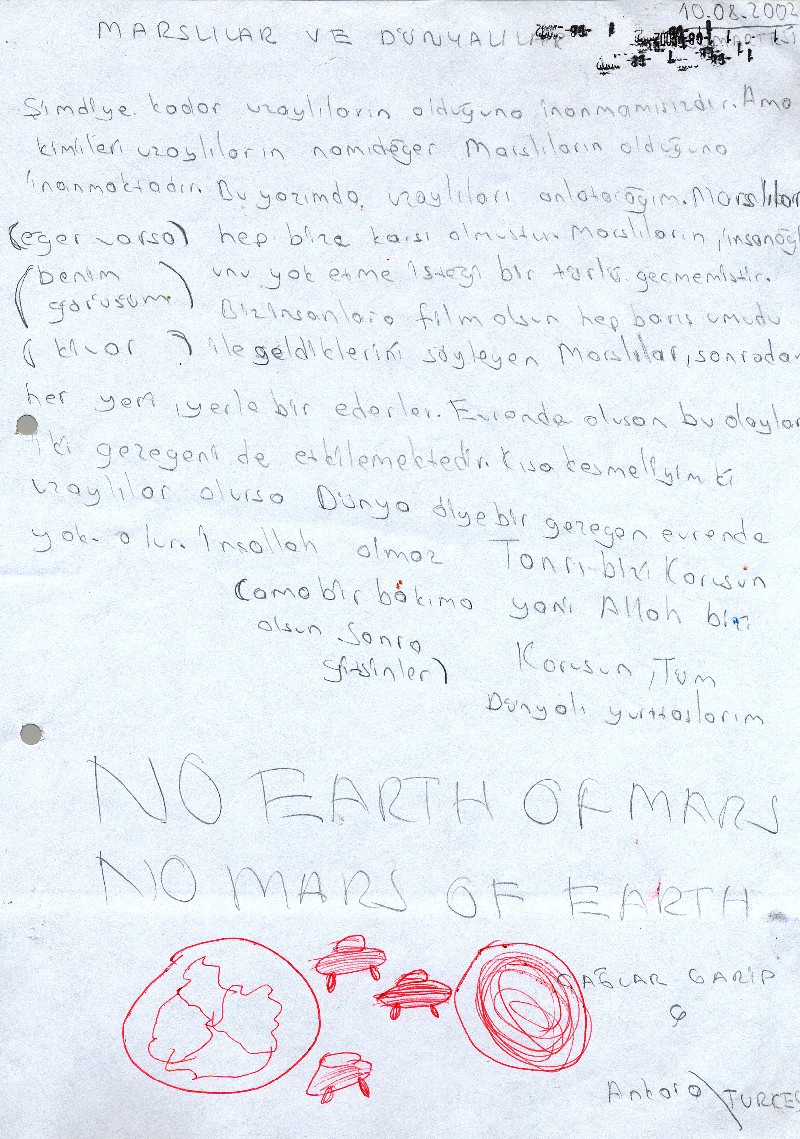 10.08.2002
MARSLILAR VE DÜNYALILAR
Şimdiye kadar uzaylıların olduğuna inanmamışızdır. Ama
kimileri uzaylıların namıdeğer Marslıların olduğuna
inanmaktadır. Bu yazımda uzaylıları anlatacağım. Marslılar
(eğer varsa) hep bize karşı olmuştur. Marslıların, insanoğl
(benim görüşüm) unu yok etme isteği bir türlü geçmemiştir.
Biz insanlara film olsun hep barış umudu
( ki var ) ile geldiklerini söyleyen Marslılar, sonrada
her yeri yerle bir ederler. Evrende oluşan bu olaylar
iki gezegeni de etkilemektedir. Kısa kesmeliyim ki
uzaylılar olursa Dünya diye bir gezegen evrende
yok olur. İnşallah olmaz Tanrı bizi Korusun
(ama bir bakıma yani Allah bizi
olsun sonra Korusun, Tüm
gitsinler)
Dünyalı yurttaşlarım
NO EARTH OF MARS
NO MARS OF EARTH
ÇAĞLAR GARİP
Ç
Ankara\TURKEY